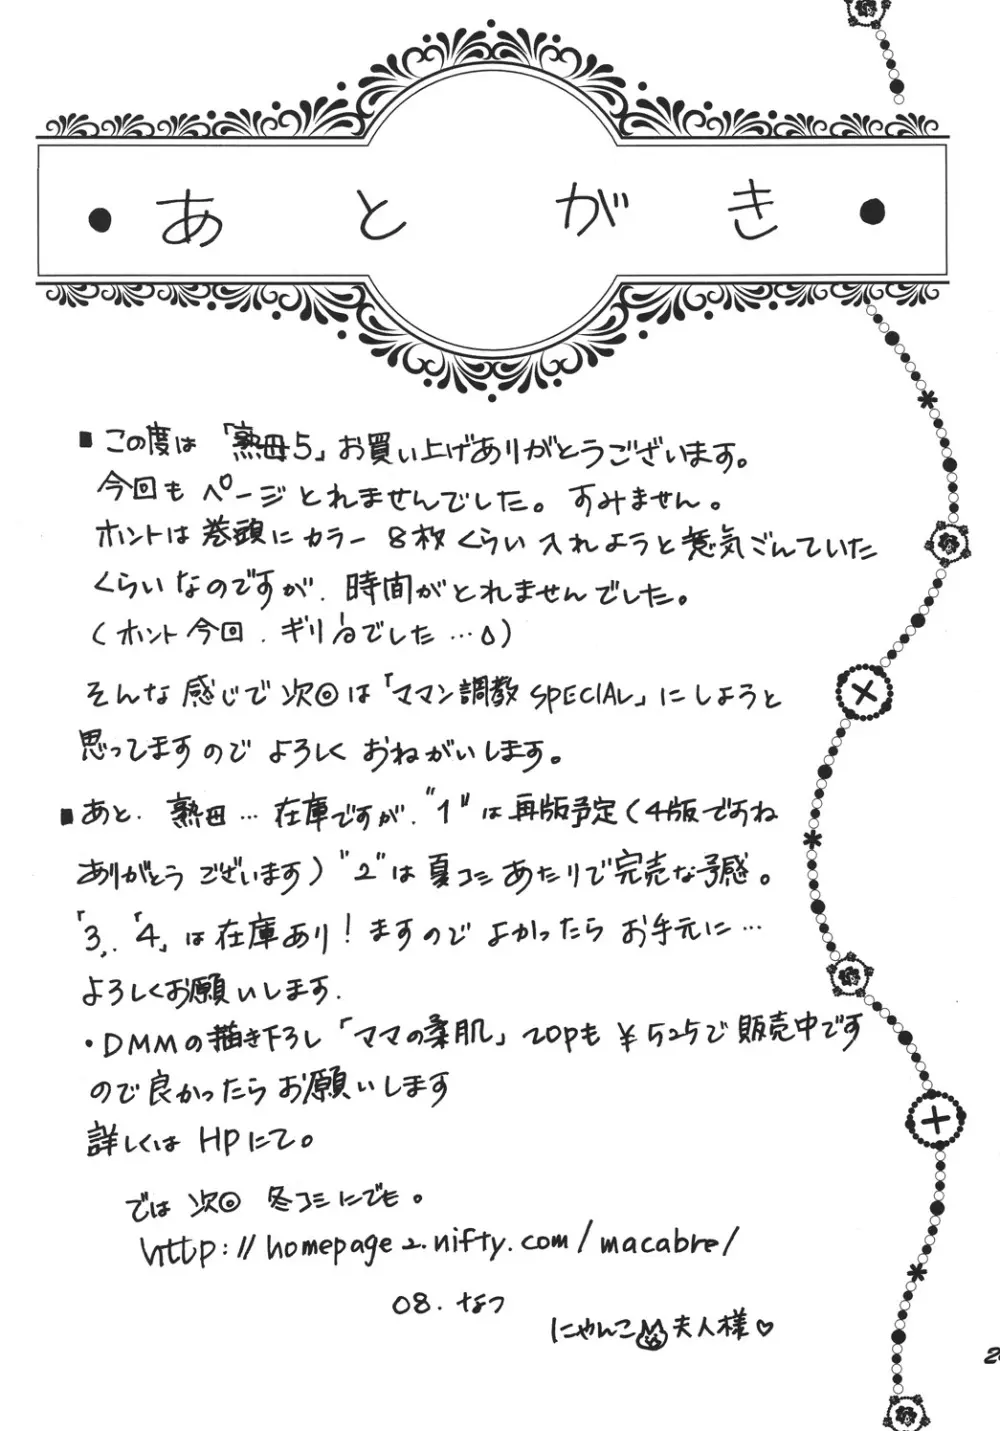 ・あとがき・
■この度は「熟母5」お買い上げありがとうございます。
今回もページとれませんでした。すみません。
ホントは巻頭にカラー8枚くらい入れようと意気ごんていた
くらいなのですが、時間がとれませんでした。
(ホント今回、ギリギリでした…)
そんな感じで次回は「ママン調教SPECIAL」にしようと
思ってますのでよろしくおねがいします。
■あと、熟母…在庫ですが、"1"は再版予定(4版ですね
ありがとうございます)"2"は夏コミあたりで完売な予感。
「3」、「4」は在庫あり!ますのでよかったらお手元に…
よろしくお願いします。
・DMMの描き下ろし「ママの柔肌」20Pも¥525で販売中です
ので良かったらお願いします
詳しくはHPにて。
では次回冬コミにでも。
http://homepage2.nifty.com/macabre/
08.なつ
にゃんこ夫人様♡